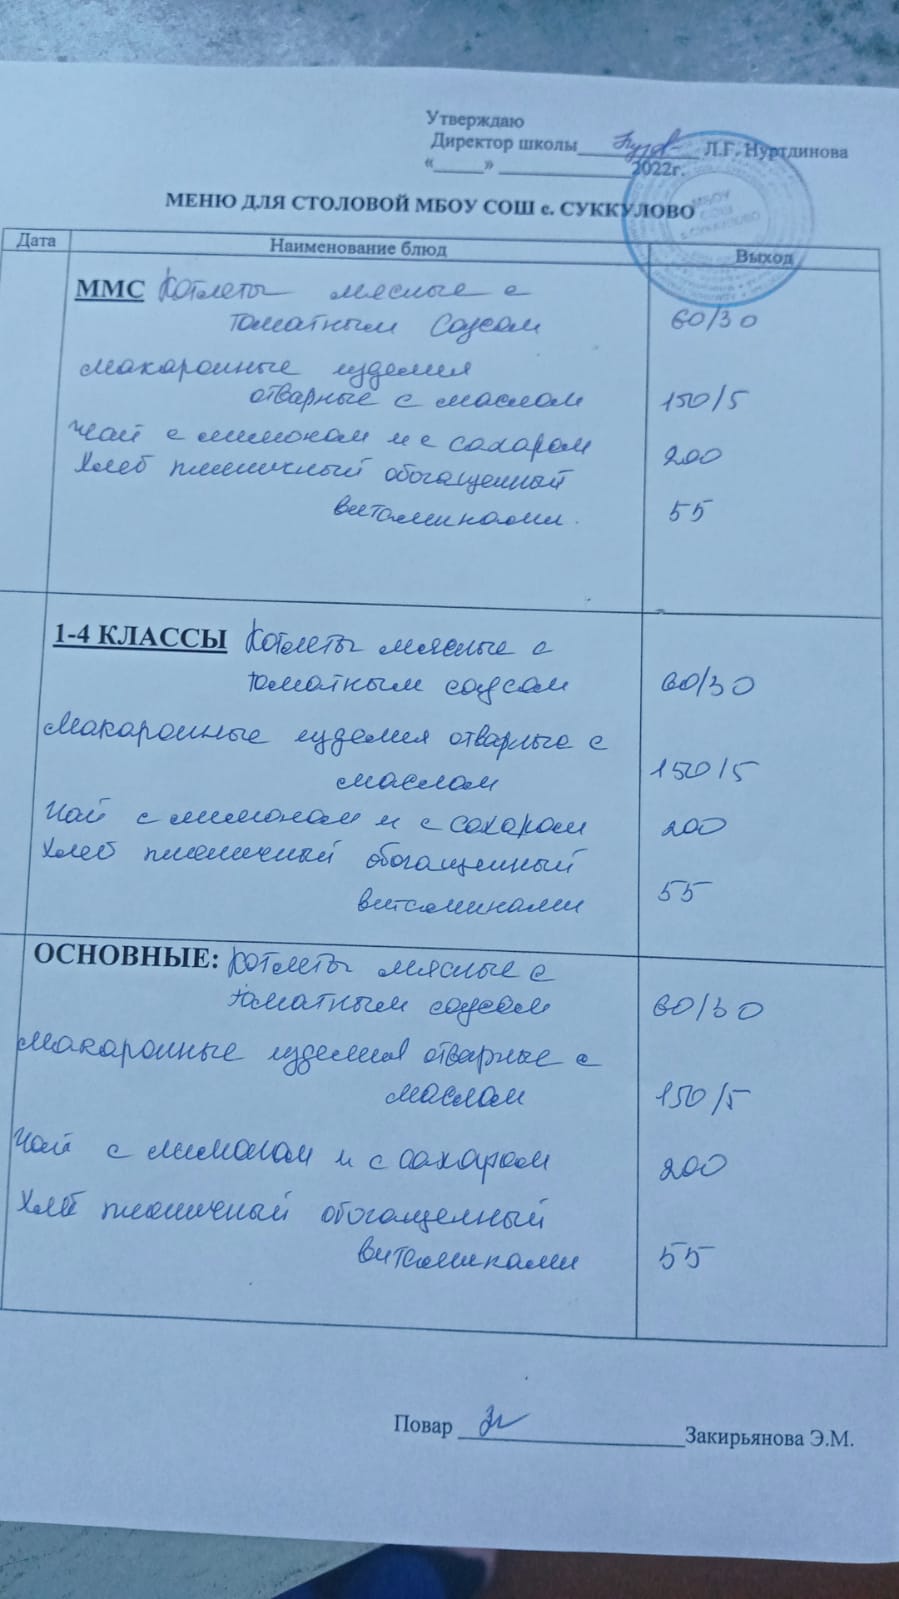 Утверждаю
Директор школы____________ Л.Г. Нуртдинова
«_____» _____________2022г.
МБОУ
СОШ
с.СУККУЛОВО
МЕНЮ ДЛЯ СТОЛОВОЙ МБОУ СОШ с. СУККУЛОВО
Дата Наименование блюд Выход
ММС Котлеты мясные с
томатным соусом 60/30
Макаронные изделия
отварные с маслом 150/5
Чай с лимоном и с сахаром 200
Хлеб пшеничный обогащенный
витаминами. 55
1-4 КЛАССЫ Котлеты мясные с
томатным соусом 60/30
Макаронные изделия отварные с
маслом 150/5
Чай с лимоном и с сахаром 200
Хлеб пшеничный обогащенный
витаминами 55
ОСНОВНЫЕ: Котлеты мясные с
томатным соусом 60/30
Макаронные изделия отварные с
маслом 150/5
Чай с лимоном и с сахаром 200
Хлеб пшеничный обогащенный
витаминами 55
Повар ____________________Закирьянова Э.М.